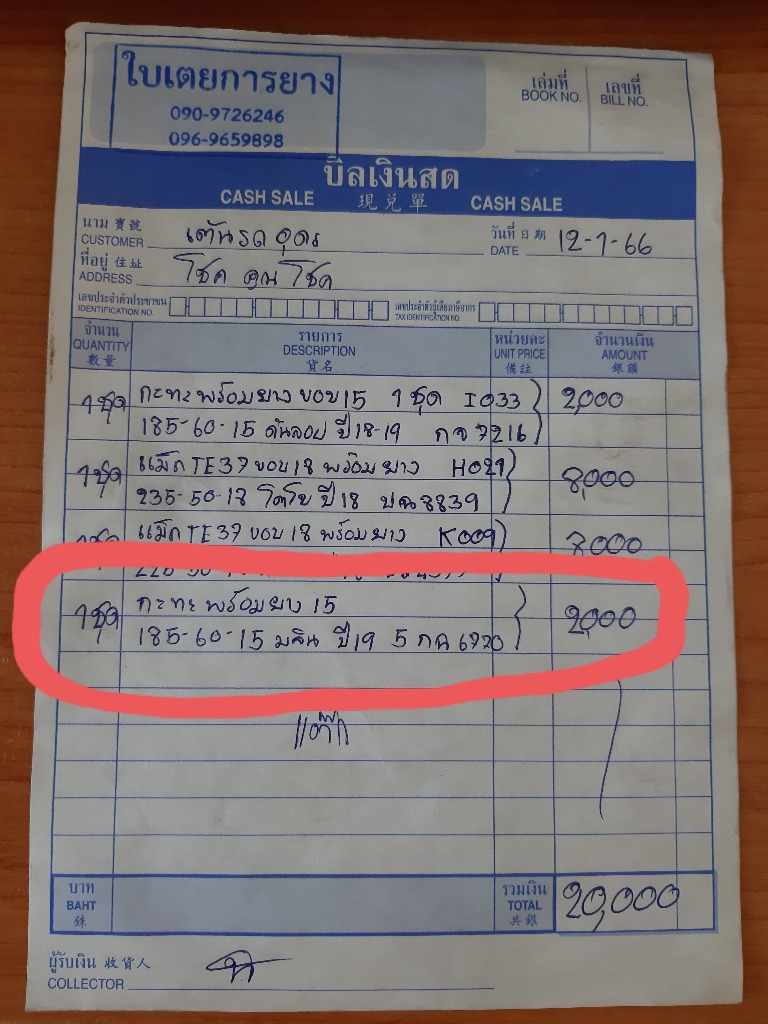 ใบเตยการยาง
090-9726246
096-9659898
เล่มที่
BOOK NO.
เลขที่
BILL NO.
บิลเงินสด
CASH SALE 現兌單 CASH SALE
นาม 寶號
CUSTOMER เต้นรถอุดร
วันที่ 日期
DATE 12-1-66
ที่อยู่ 住址
ADDRESS โชค คูณ โชค
เลขประจำตัวประชาชน
IDENTIFICATION NO.
เลขประจำตัวผู้เสียภาษีอากร
TAX IDENTIFICATION NO.
จำนวน
QUANTITY
數量
รายการ
DESCRIPTION
貨名
หน่วยละ
UNIT PRICE
備註
จำนวนเงิน
AMOUNT
銀額
1ชุด กะทะพร้อมยาง ขอบ 15 1 ชุด I033 2,000
185-60-15 ดันลอป ปี 18-19 กจ 7216
1ชุด แม็ก TE37 ขอบ 18 พร้อมยาง H029 8,000
235-50-18 โตโย ปี 18 8839
1ชุด แม็ก TE37 ขอบ 18 พร้อมยาง K009 8,000
1ชุด กะทะพร้อมยาง 15 2,000
185-60-15 มลิน ปี 19 5 กฉ 6720
บาท
BAHT
銖
รวมเงิน
TOTAL
共銀
20,000
ผู้รับเงิน 收貨人
COLLECTOR